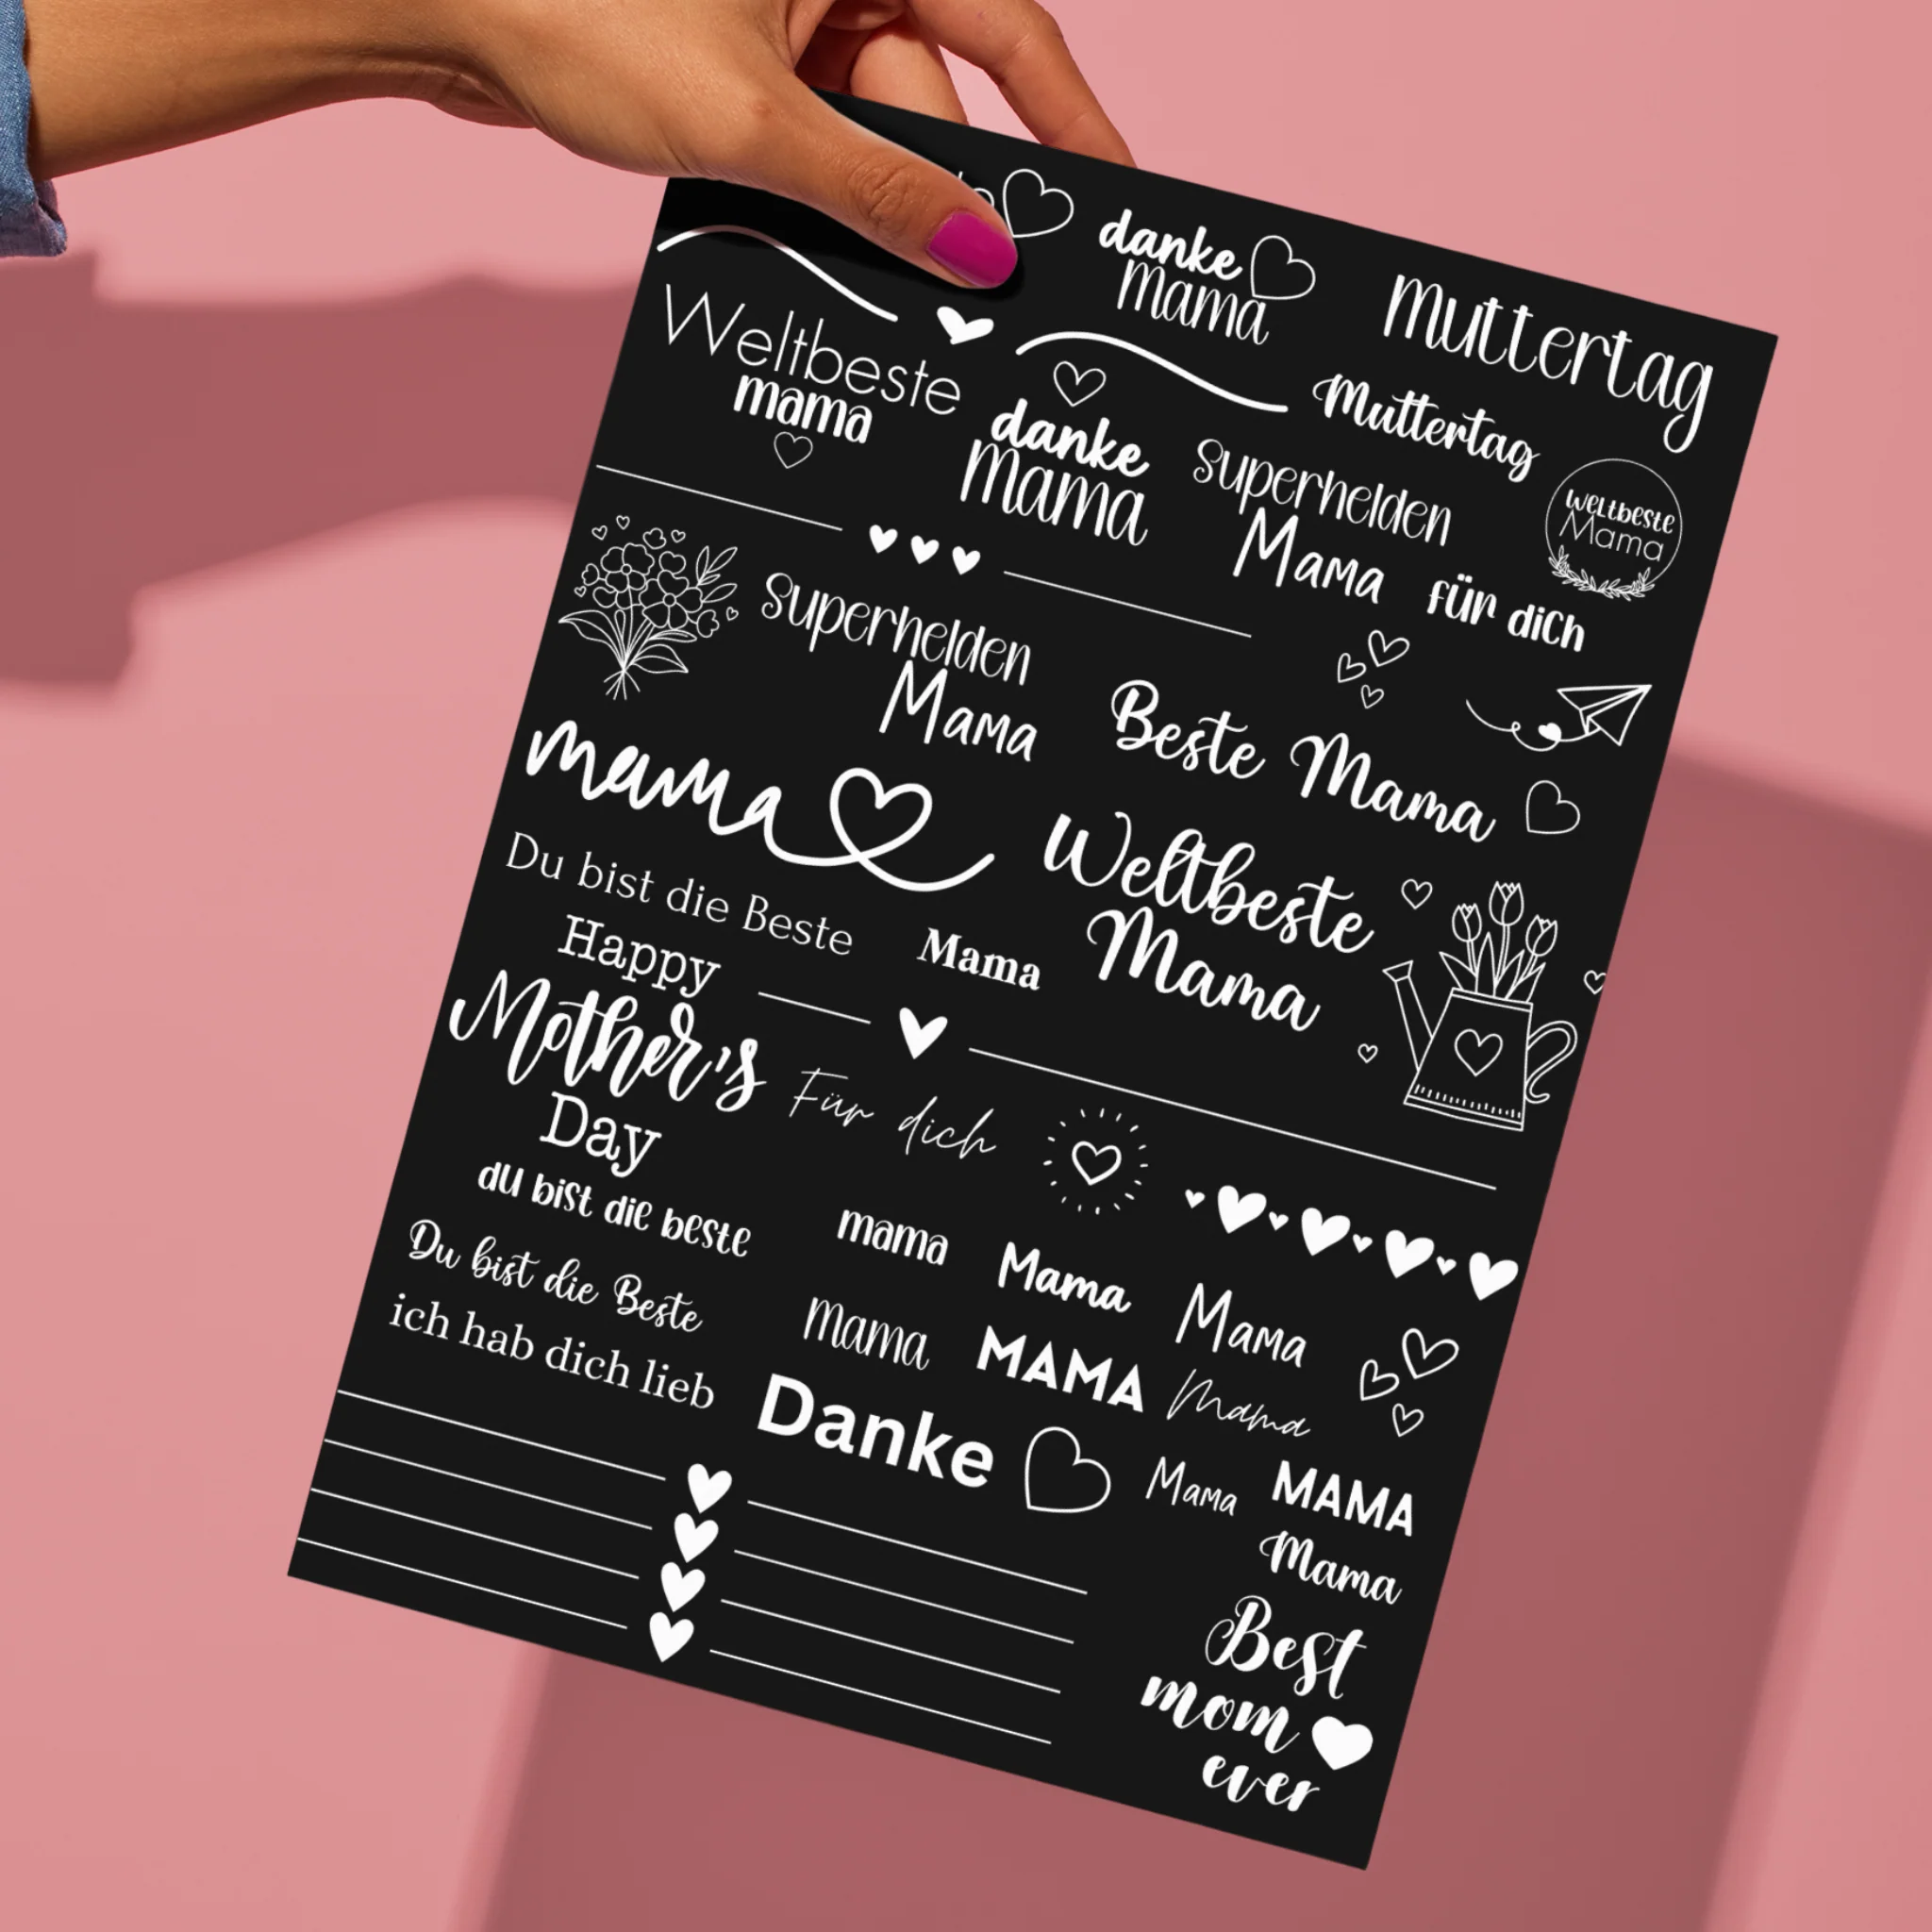 danke
Mama
Muttertag
Weltbeste
mama
danke
Mama
Muttertag
Superhelden
Mama
weltbeste
Mama
für dich
Superhelden
Mama
Beste Mama
mama
Du bist die Beste
Mama
Weltbeste
Mama
Happy
Mother's
Day
Für dich
du bist die beste
mama
Mama
Mama
Du bist die Beste
Mama
MAMA
Mama
ich hab dich lieb
Danke
Mama
MAMA
Mama
Best
mom
ever